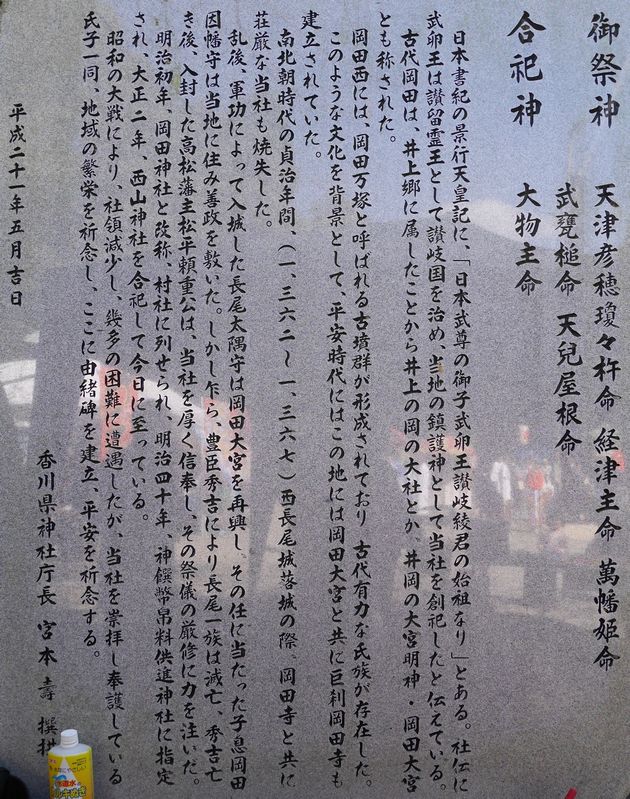 御祭神　天津彦穂瓊々杵命　経津主命　萬幡姫命
武甕槌命　天兒屋根命
合祀神　大物主命
日本書紀の景行天皇記に、「日本武尊の御子武卵王讃岐綾君の始祖なり」とある。社伝に
武卵王は讃留霊王として讃岐国を治め、当地の鎮護神として当社を創祀したと伝えている。
古代岡田は、井上郷に属したことから井上の岡の大社とか、井岡の大宮明神・岡田大宮
とも称された。
岡田西には、岡田万塚と呼ばれる古墳群が形成されており　古代有力な氏族が存在した。
このような文化を背景として、平安時代にはこの地には岡田大宮と共に巨刹岡田寺も
建立されていた。
南北朝時代の貞治年間　（一、三六二〜一、三六七）西長尾城落城の際、岡田寺と共に
荘厳な当社も焼失した。
乱後、軍功によって入城した長尾大隅守は岡田大宮を再興し　その任に当たった子息岡田
因幡守は当地に住み善政を敷いた。しかし乍ら、豊臣秀吉により長尾一族は滅亡、秀吉亡
き後、入封した高松藩主松平頼重公は、当社を厚く信奉し、その祭儀の厳修に力を注いだ。
明治初年、岡田神社と改称、村社に列せられ、明治四十年、神饌幣帛料供進神社に指定
され、大正二年、西山神社を合祀して今日に至っている。
昭和の大戦により、社領減少し、幾多の困難に遭遇したが、当社を崇拝し奉護している
氏子一同、地域の繁栄を祈念し、ここに由緒碑を建立、平安を祈念する。
平成二十一年五月吉日
香川県神社庁長　宮本　壽　撰